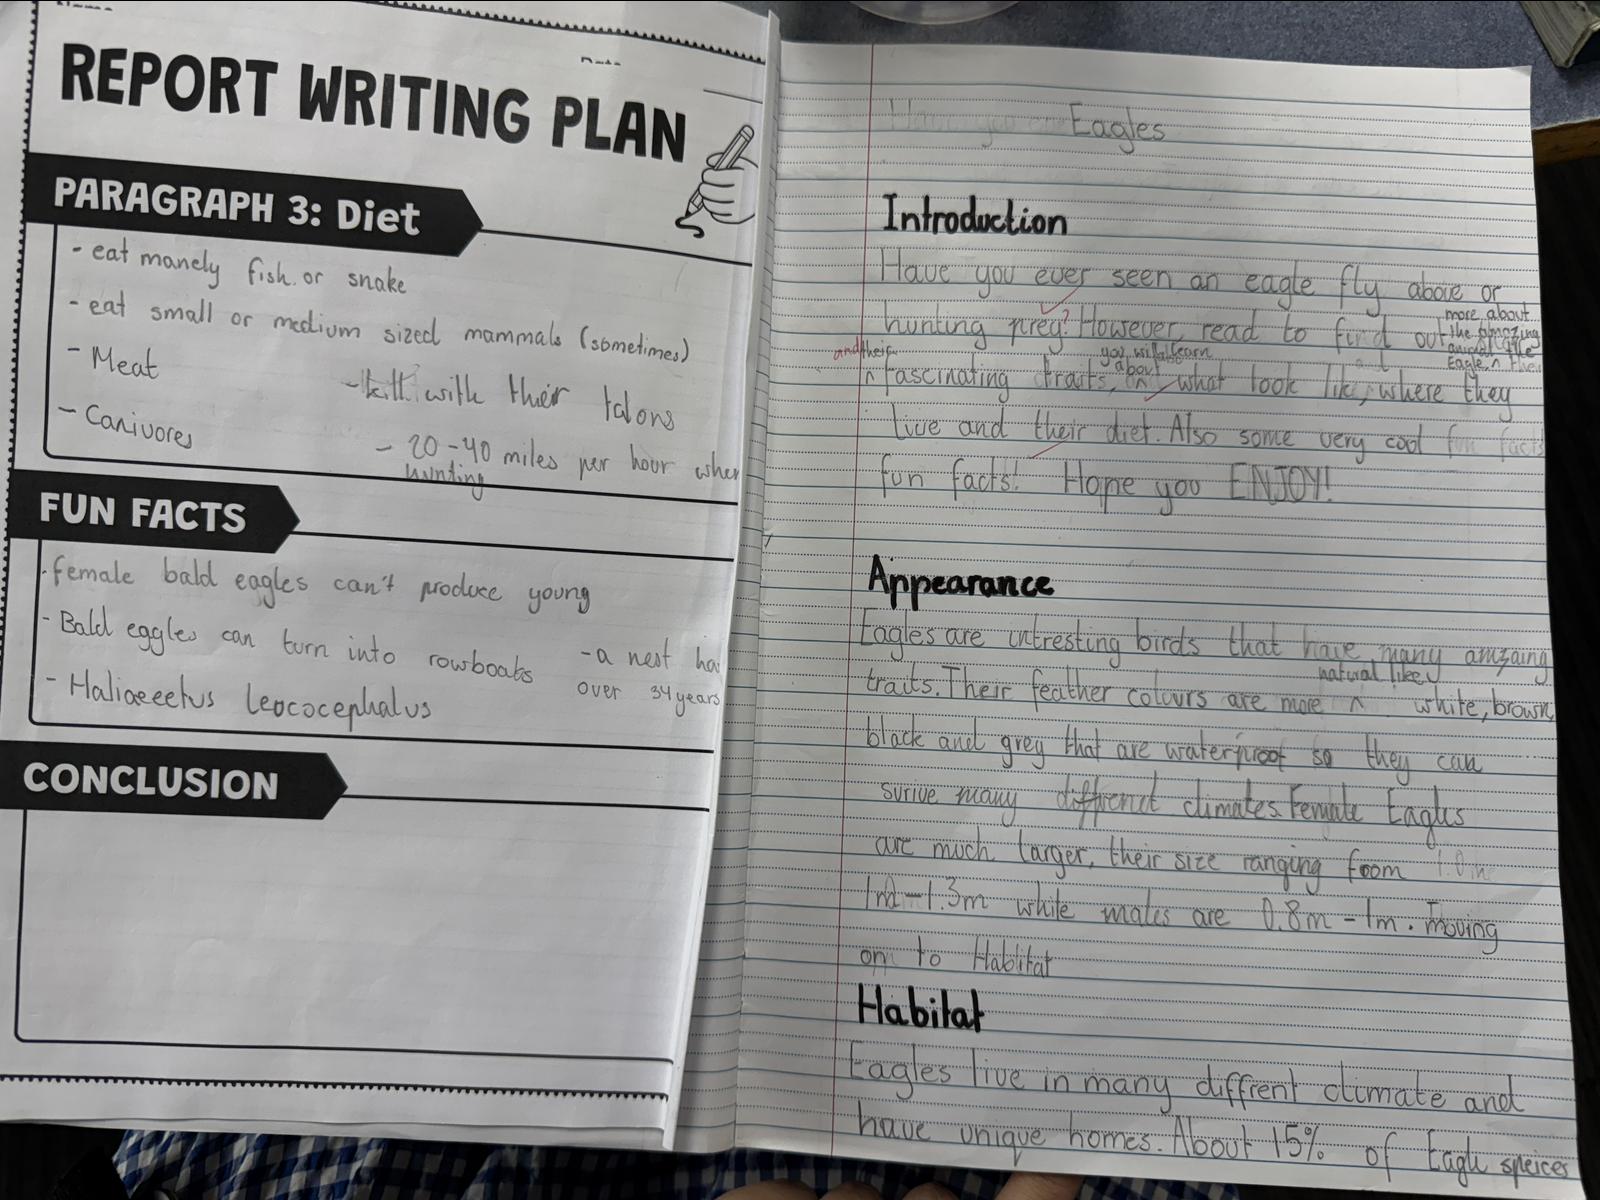 REPORT WRITING PLAN
PARAGRAPH 3: Diet
- eat manely fish or snake
- eat small or medium sized mammals (sometimes)
- Meat
- kill with their talons
- Canivores
- 20-40 miles per hour when
hunting
FUN FACTS
- female bald eagles can't produce young
- Bald eggles can turn into rowboats
- a nest ha
over 34 years
- Haliaeeetus leococephalus
CONCLUSION
Eagles
Introduction
Have you ever seen an eagle fly above or
hunting prey? However, read to find out more about
the amazing
Eagle,
and their
fascinating traits, you will learn
about what look like, where they
live and their diet. Also some very cool fun facts
fun facts! Hope you ENJOY!
Appearance
Eagles are intresting birds that have many amzaing
traits. Their feather colours are more natural like white, brown,
black and grey that are waterproof so they can
surive many diffrenct climates. Female Eagles
are much larger, their size ranging from 1.0m
1m-1.3m while males are 0.8m-1m. Moving
on to Habitat
Habitat
Eagles live in many diffrent climate and
have unique homes. About 15% of Eagle speices